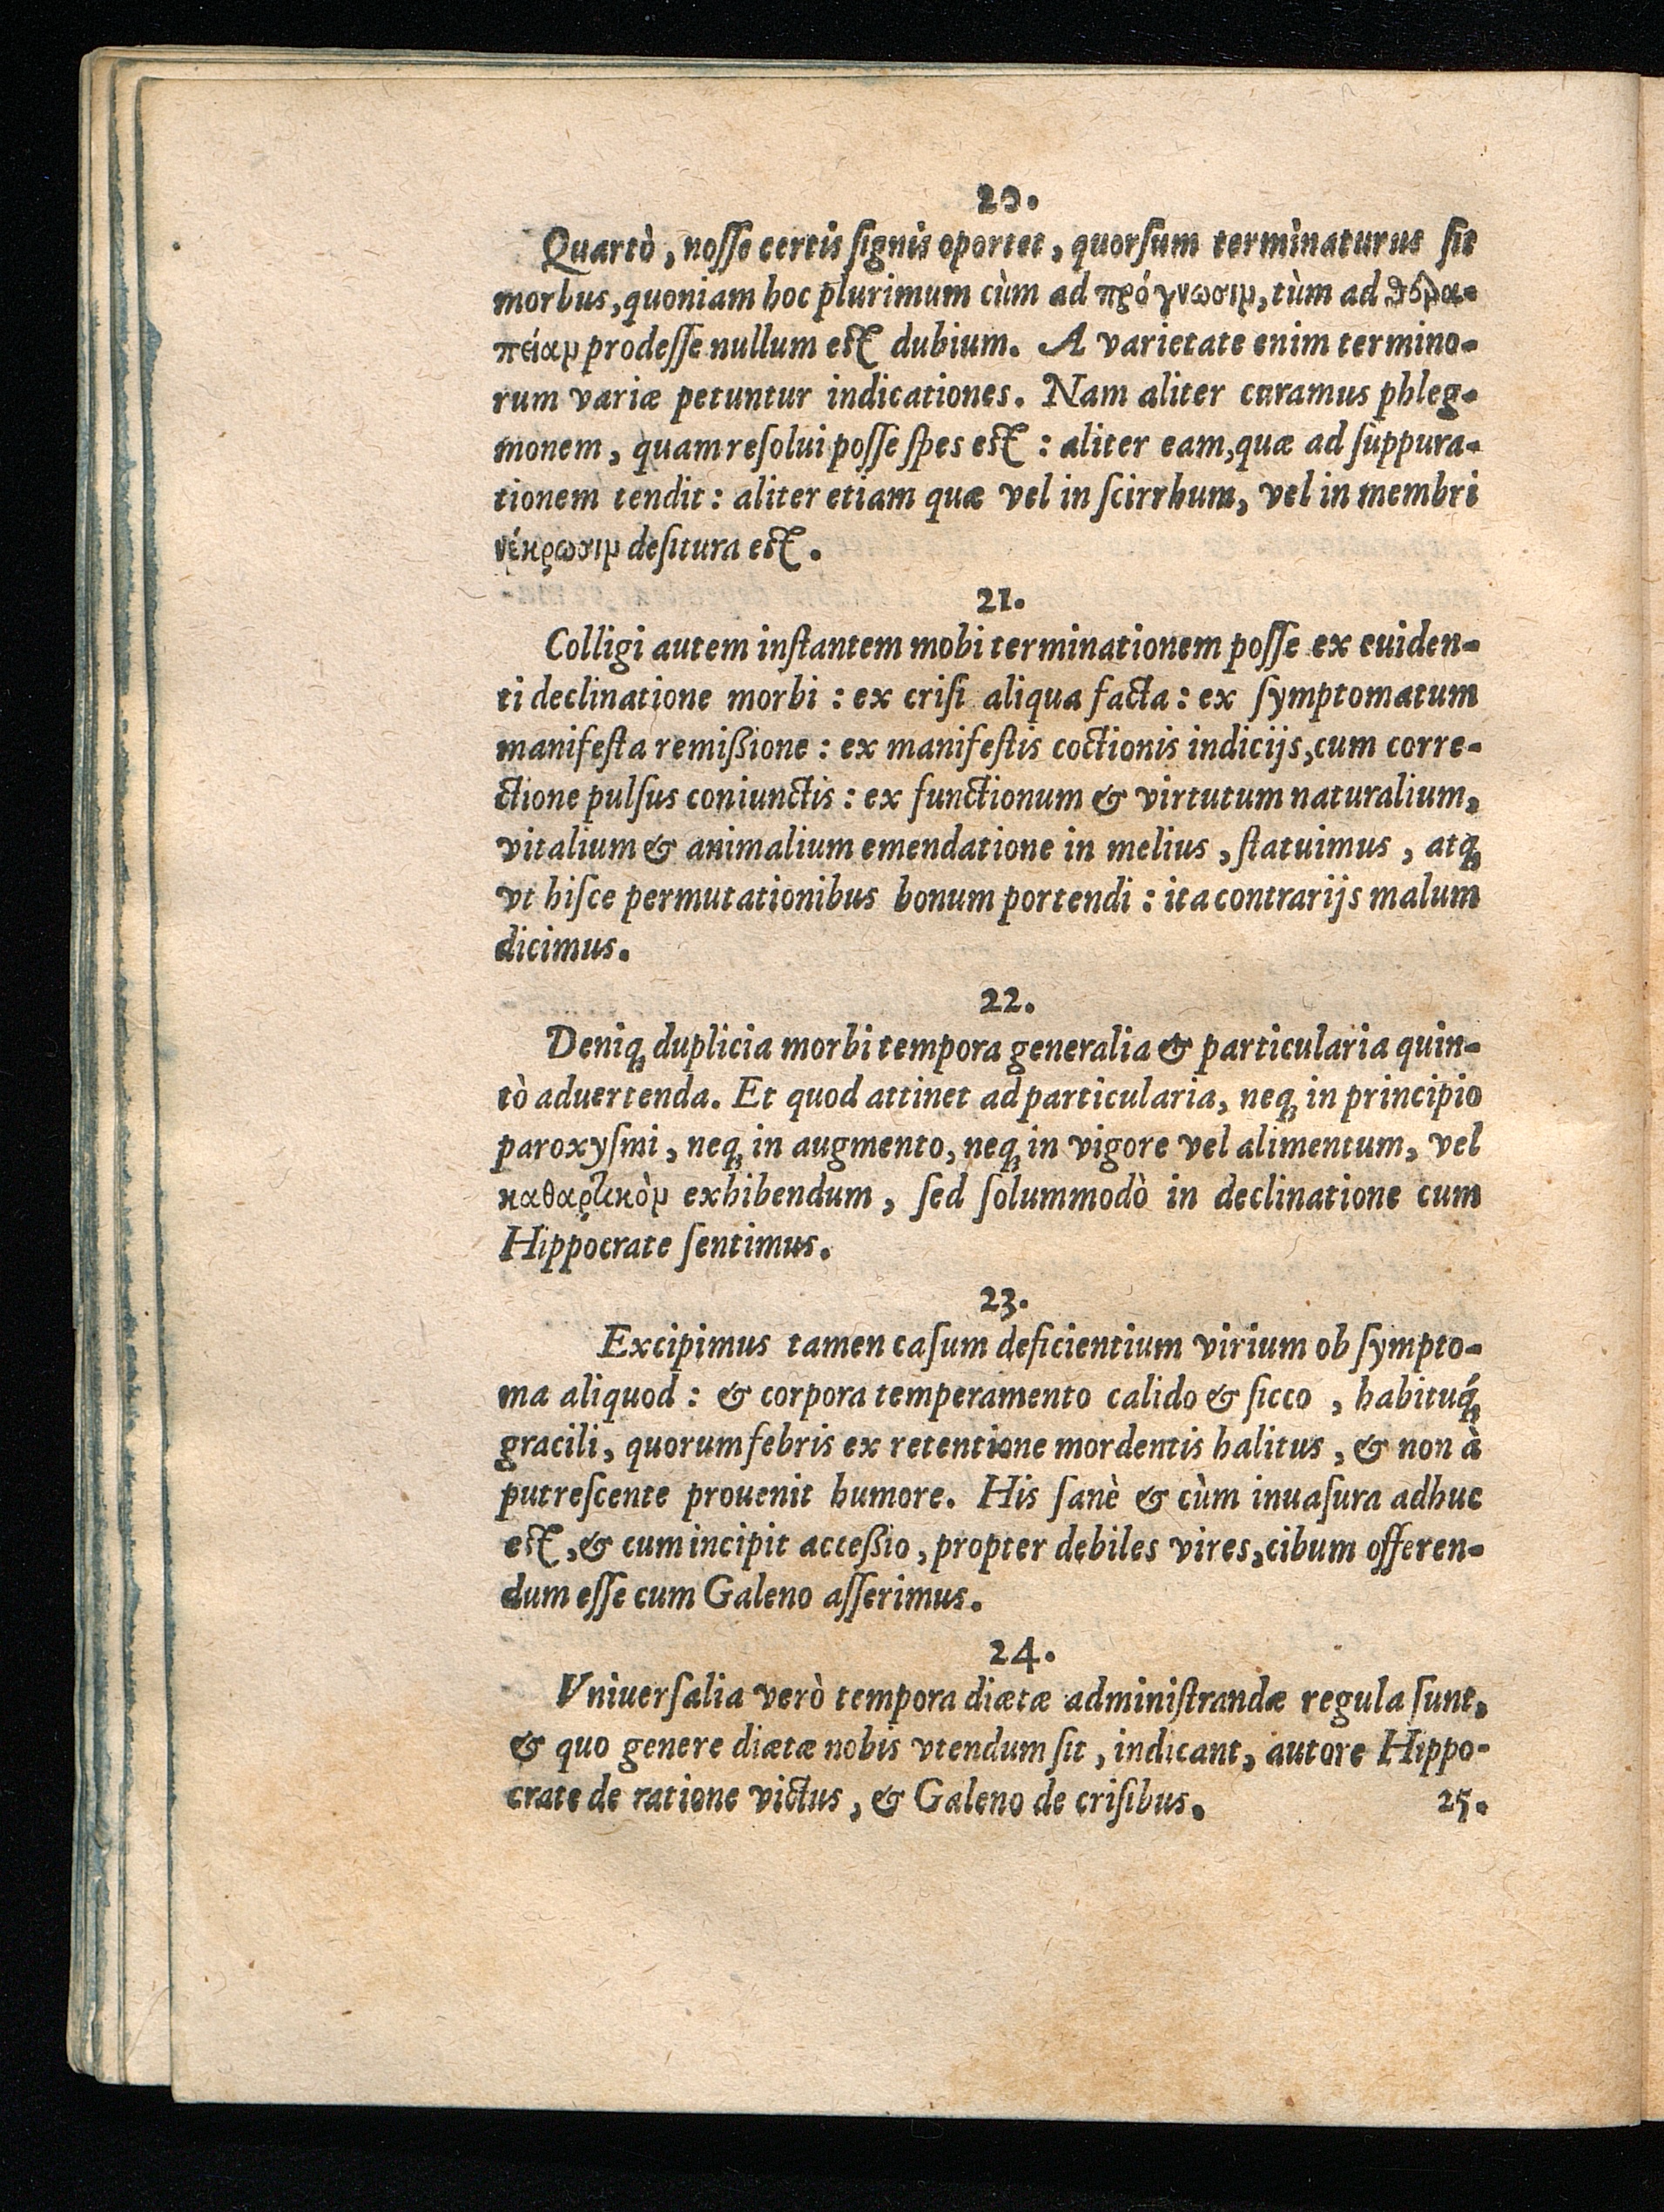 20.
Quartò, noſſe certis ſignis oportet, quorſum terminaturus ſit
morbus, quoniam hoc plurimum cùm ad πρόγνωσιν, tùm ad θερα-
πείαν prodeſſe nullum eſt dubium. A varietate enim termino-
rum variæ petuntur indicationes. Nam aliter curamus phleg-
monem, quam reſolui poſſe ſpes eſt : aliter eam, quæ ad ſuppura-
tionem tendit : aliter etiam quæ vel in ſcirrhum, vel in membri
νέκρωσιν deſitura eſt.
21.
Colligi autem inſtantem mobi terminationem poſſe ex euiden-
ti declinatione morbi : ex criſi aliqua facta : ex ſymptomatum
manifeſta remißione : ex manifeſtis coctionis indicijs, cum corre-
ctione pulſus coniunctis : ex functionum & virtutum naturalium,
vitalium & animalium emendatione in melius, ſtatuimus, atq;
vt hiſce permutationibus bonum portendi : ita contrarijs malum
dicimus.
22.
Deniq; duplicia morbi tempora generalia & particularia quin-
tò aduertenda. Et quod attinet ad particularia, neq; in principio
paroxyſmi, neq; in augmento, neq; in vigore vel alimentum, vel
καθαρτικὸν exhibendum, ſed ſolummodò in declinatione cum
Hippocrate ſentimus.
23.
Excipimus tamen caſum deficientium virium ob ſympto-
ma aliquod : & corpora temperamento calido & ſicco, habituq́;
gracili, quorum febris ex retentione mordentis halitus, & non à
putreſcente prouenit humore. His ſanè & cùm inuaſura adhuc
eſt, & cum incipit acceßio, propter debiles vires, cibum offeren-
dum eſſe cum Galeno aſſerimus.
24.
Vniuerſalia verò tempora diætæ adminiſtrandæ regula ſunt,
& quo genere diætæ nobis vtendum ſit, indicant, autore Hippo-
crate de ratione victus, & Galeno de criſibus. 25.